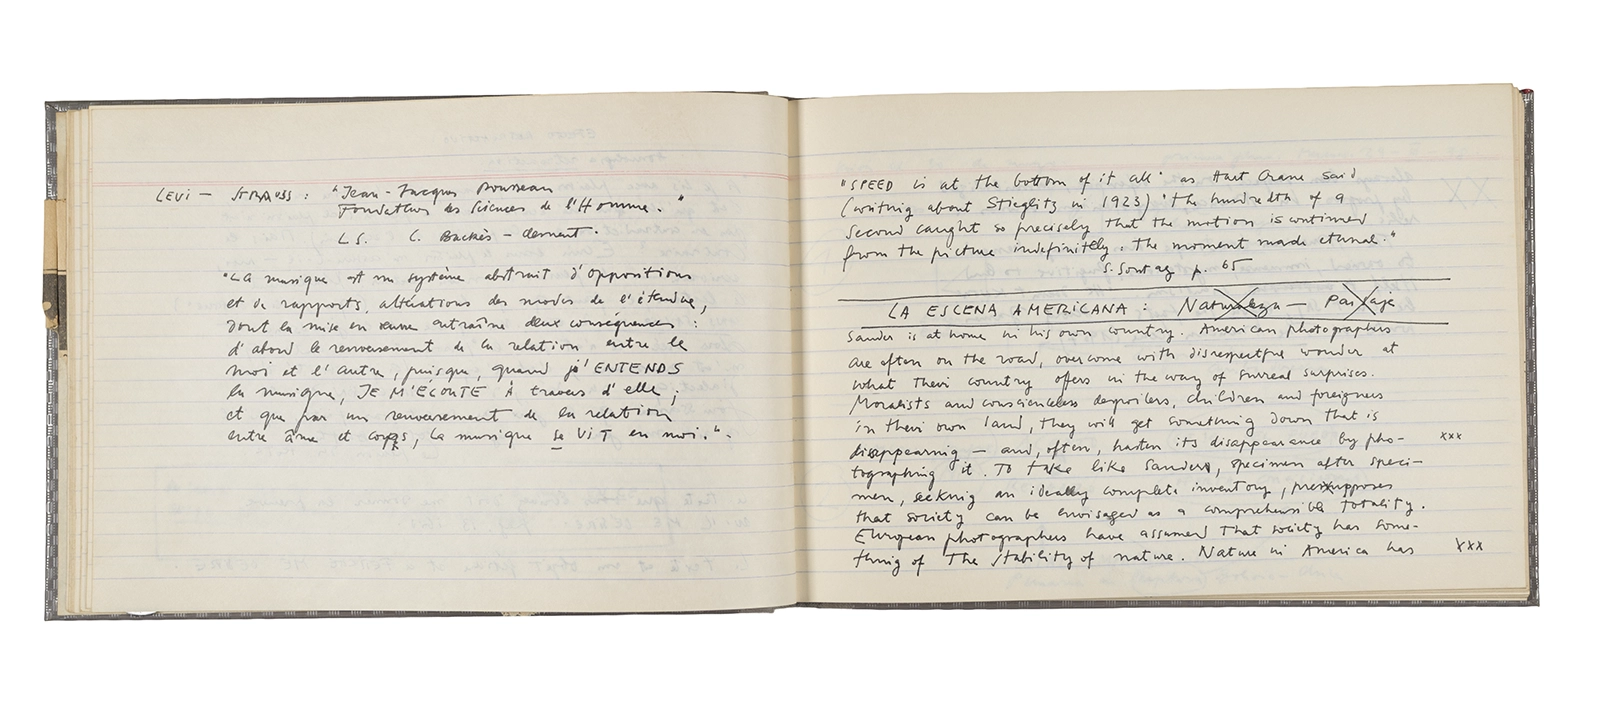 LEVI – STRAUSS : "Jean-Jacques Rousseau
Fondateur des Sciences de l'Homme."
L.S. C. Backès – clement.
"LA musique est un système abstrait d'oppositions
et de rapports, altérations des modes de l'étendue,
dont la mise en œuvre entraîne deux conséquences :
d'abord le renversement de la relation entre le
moi et l'autre, puisque, quand j'ENTENDS
la musique, JE M'ÉCOUTE À travers d'elle ;
et que par un renversement de la relation
entre âme et corps, la musique se ViT en moi.".
"SPEED is at the bottom of it all" as Hart Crane said
(writing about Stieglitz in 1923) "the hundredth of a
second caught so precisely that the motion is continued
from the picture indefinitely: the moment made eternal."
S. Sontag p. 65
LA ESCENA AMERICANA : Naturaleza – Paisaje
Sander is at home in his own country. American photographers
are often on the road, overcome with disrespectful wonder at
what their country offers in the way of surreal surprises.
Moralists and conscienceless despoilers, children and foreigners
in their own land, they will get something down that is
disappearing – and, often, hasten its disappearance by pho-
xxx
tographing it. To take like Sander, specimen after speci-
men, seeking an ideally complete inventory, presupposes
that society can be envisaged as a comprehensible totality.
European photographers have assumed that society has some-
thing of the stability of nature. Nature in America has
xxx